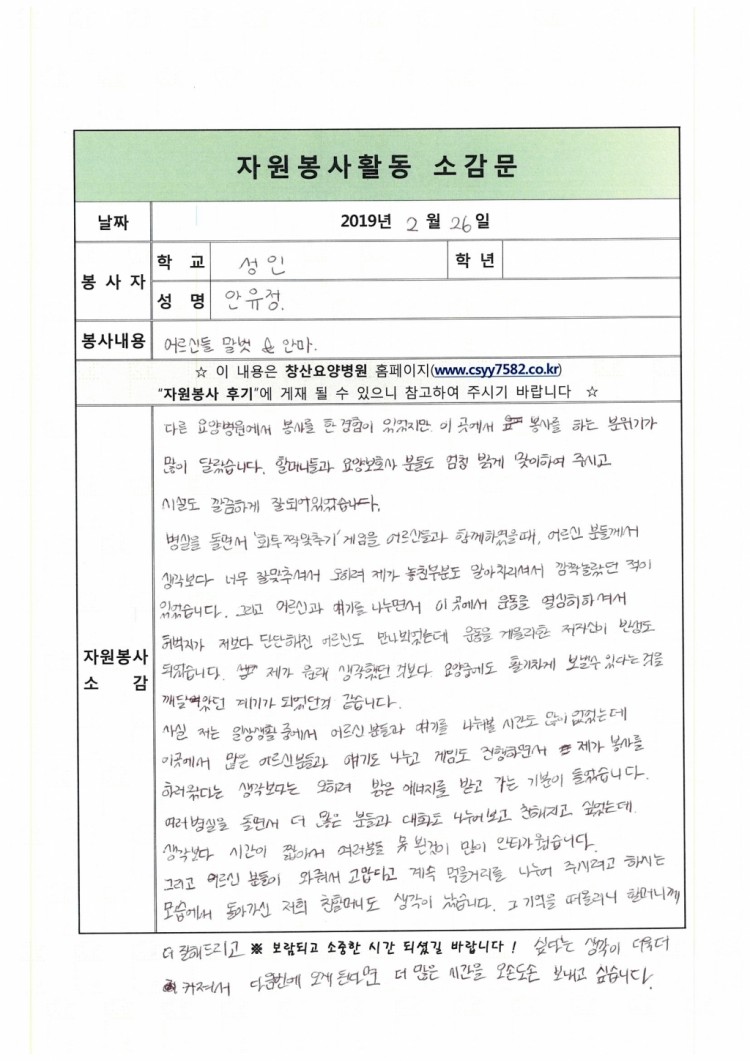 자원봉사활동 소감문
날짜 2019년 2월 26일
봉사자 학교 성인 학년
성명 안유정.
봉사내용 어르신들 말벗 & 안마.
☆ 이 내용은 창산요양병원 홈페이지(www.csyy7582.co.kr)
“자원봉사 후기”에 게재 될 수 있으니 참고하여 주시기 바랍니다 ☆
자원봉사 소감
다른 요양병원에서 봉사를 한 경험이 있었지만 이 곳에서 봉사를 하는 분위기가
많이 달랐습니다. 할머니들과 요양보호사 분들도 엄청 밝게 맞이하여 주시고
시설도 깔끔하게 잘되어있었습니다.
병실을 돌면서 '화투짝맞추기' 게임을 어르신들과 함께하였을때, 어르신 분들께서
생각보다 너무 잘맞추셔서 오히려 제가 놓친부분도 알아차리셔서 깜짝놀랐던 적이
있었습니다. 그리고 어르신과 얘기를 나누면서 이 곳에서 운동을 열심히하셔서
허벅지가 저보다 단단해진 어르신도 만나뵈었는데 운동을 게을리한 저자신이 반성도
되었습니다. 제가 원래 생각했던 것보다 요양중에도 활기차게 보낼수 있다는 것을
깨달았던 계기가 되었던것 같습니다.
사실 저는 일상생활 중에서 어르신 분들과 얘기를 나눠볼 시간도 많이 없었는데
이곳에서 많은 어르신분들과 얘기도 나누고 게임도 진행하면서 제가 봉사를
하러왔다는 생각보다는 오히려 밝은 에너지를 받고 가는 기분이 들었습니다.
여러병실을 돌면서 더 많은 분들과 대화도 나누어보고 친해지고 싶었는데.
생각보다 시간이 짧아서 여러분들 못 뵌것이 많이 안타까웠습니다.
그리고 어르신 분들이 와줘서 고맙다고 계속 먹을거리를 나누어 주시려고 하시는
모습에서 돌아가신 저희 친할머니도 생각이 났습니다. 그 기억을 떠올리니 할머니께
더 잘해드리고 싶다는 생각이 더욱더
※ 보람되고 소중한 시간 되셨길 바랍니다 !
커져서 다음번에 오게 된다면 더 많은 시간을 오손도손 보내고 싶습니다.